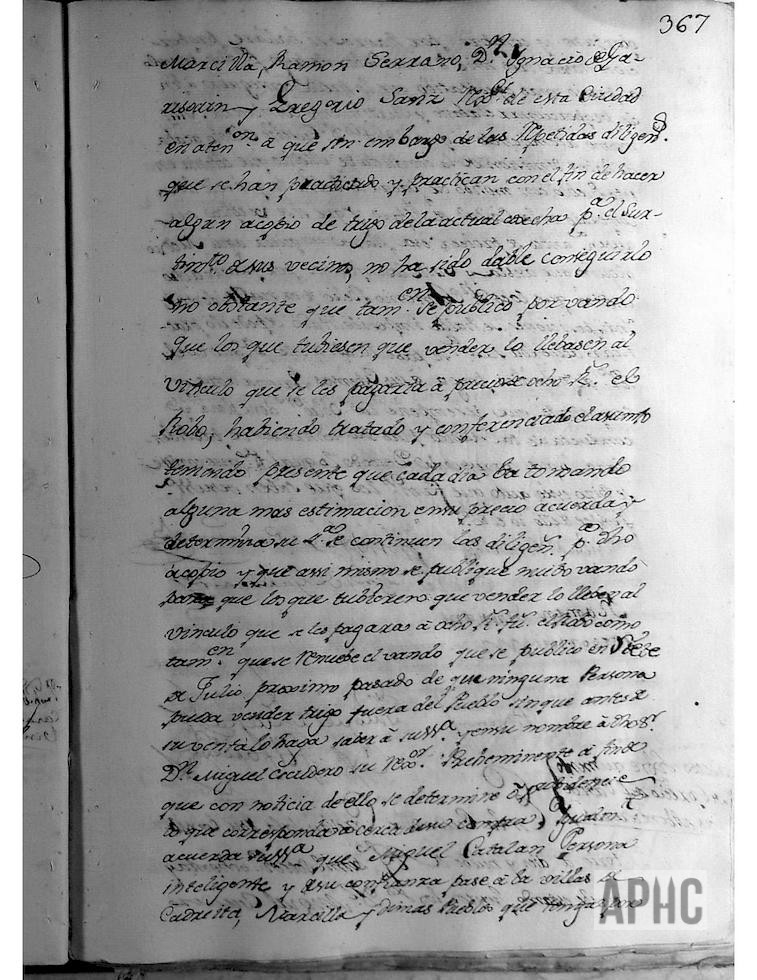 367
Marcilla, Ramon Serrano, Dn. Ignacio de Ga-
y Gregorio Sanz de esta Ciudad
en atenon. a que sin embargo de las repetidas diligens.
que se han practicado y practican con el fin de hacer
algun acopio de trigo de la actual cosecha pa. el sur-
timto. de sus vecinos, no ha sido dable conseguirlo
no obstante que tamen. se publico por vando
que los que tubiesen que vender lo llebasen al
vinculo que se les pagaria a precio de ocho Rs. el
Robo, habiendo tratado y conferenciado el asunto
teniendo presente que cada dia ba tomando
alguna mas estimacion en su precio acuerda y
determina su se continuen las diligens. pa. dho
acopio y que assi mismo se publique nuebo vando
que los que tubieren que vender lo lleben al
vinculo que se les pagara a ocho Rs. fs. el Robo como
tamen. que se renuebe el vando que se publico en
de Julio proximo pasado de que ninguna Persona
pueda vender trigo fuera del Pueblo sin que antes de
su venta lo haga saber a su Ssa. y en su nombre a
Dn. Miguel Escudero su Rexor. Preheminente a fin de
que con noticia de ello se determine
lo que corresponda acerca de su compra, Igualmte.
acuerda su Ssa. que Miguel Catalan Persona
inteligente y de su confianza pase a las villas de
Cadreita, Marcilla y demas Pueblos que tenga por
APHC